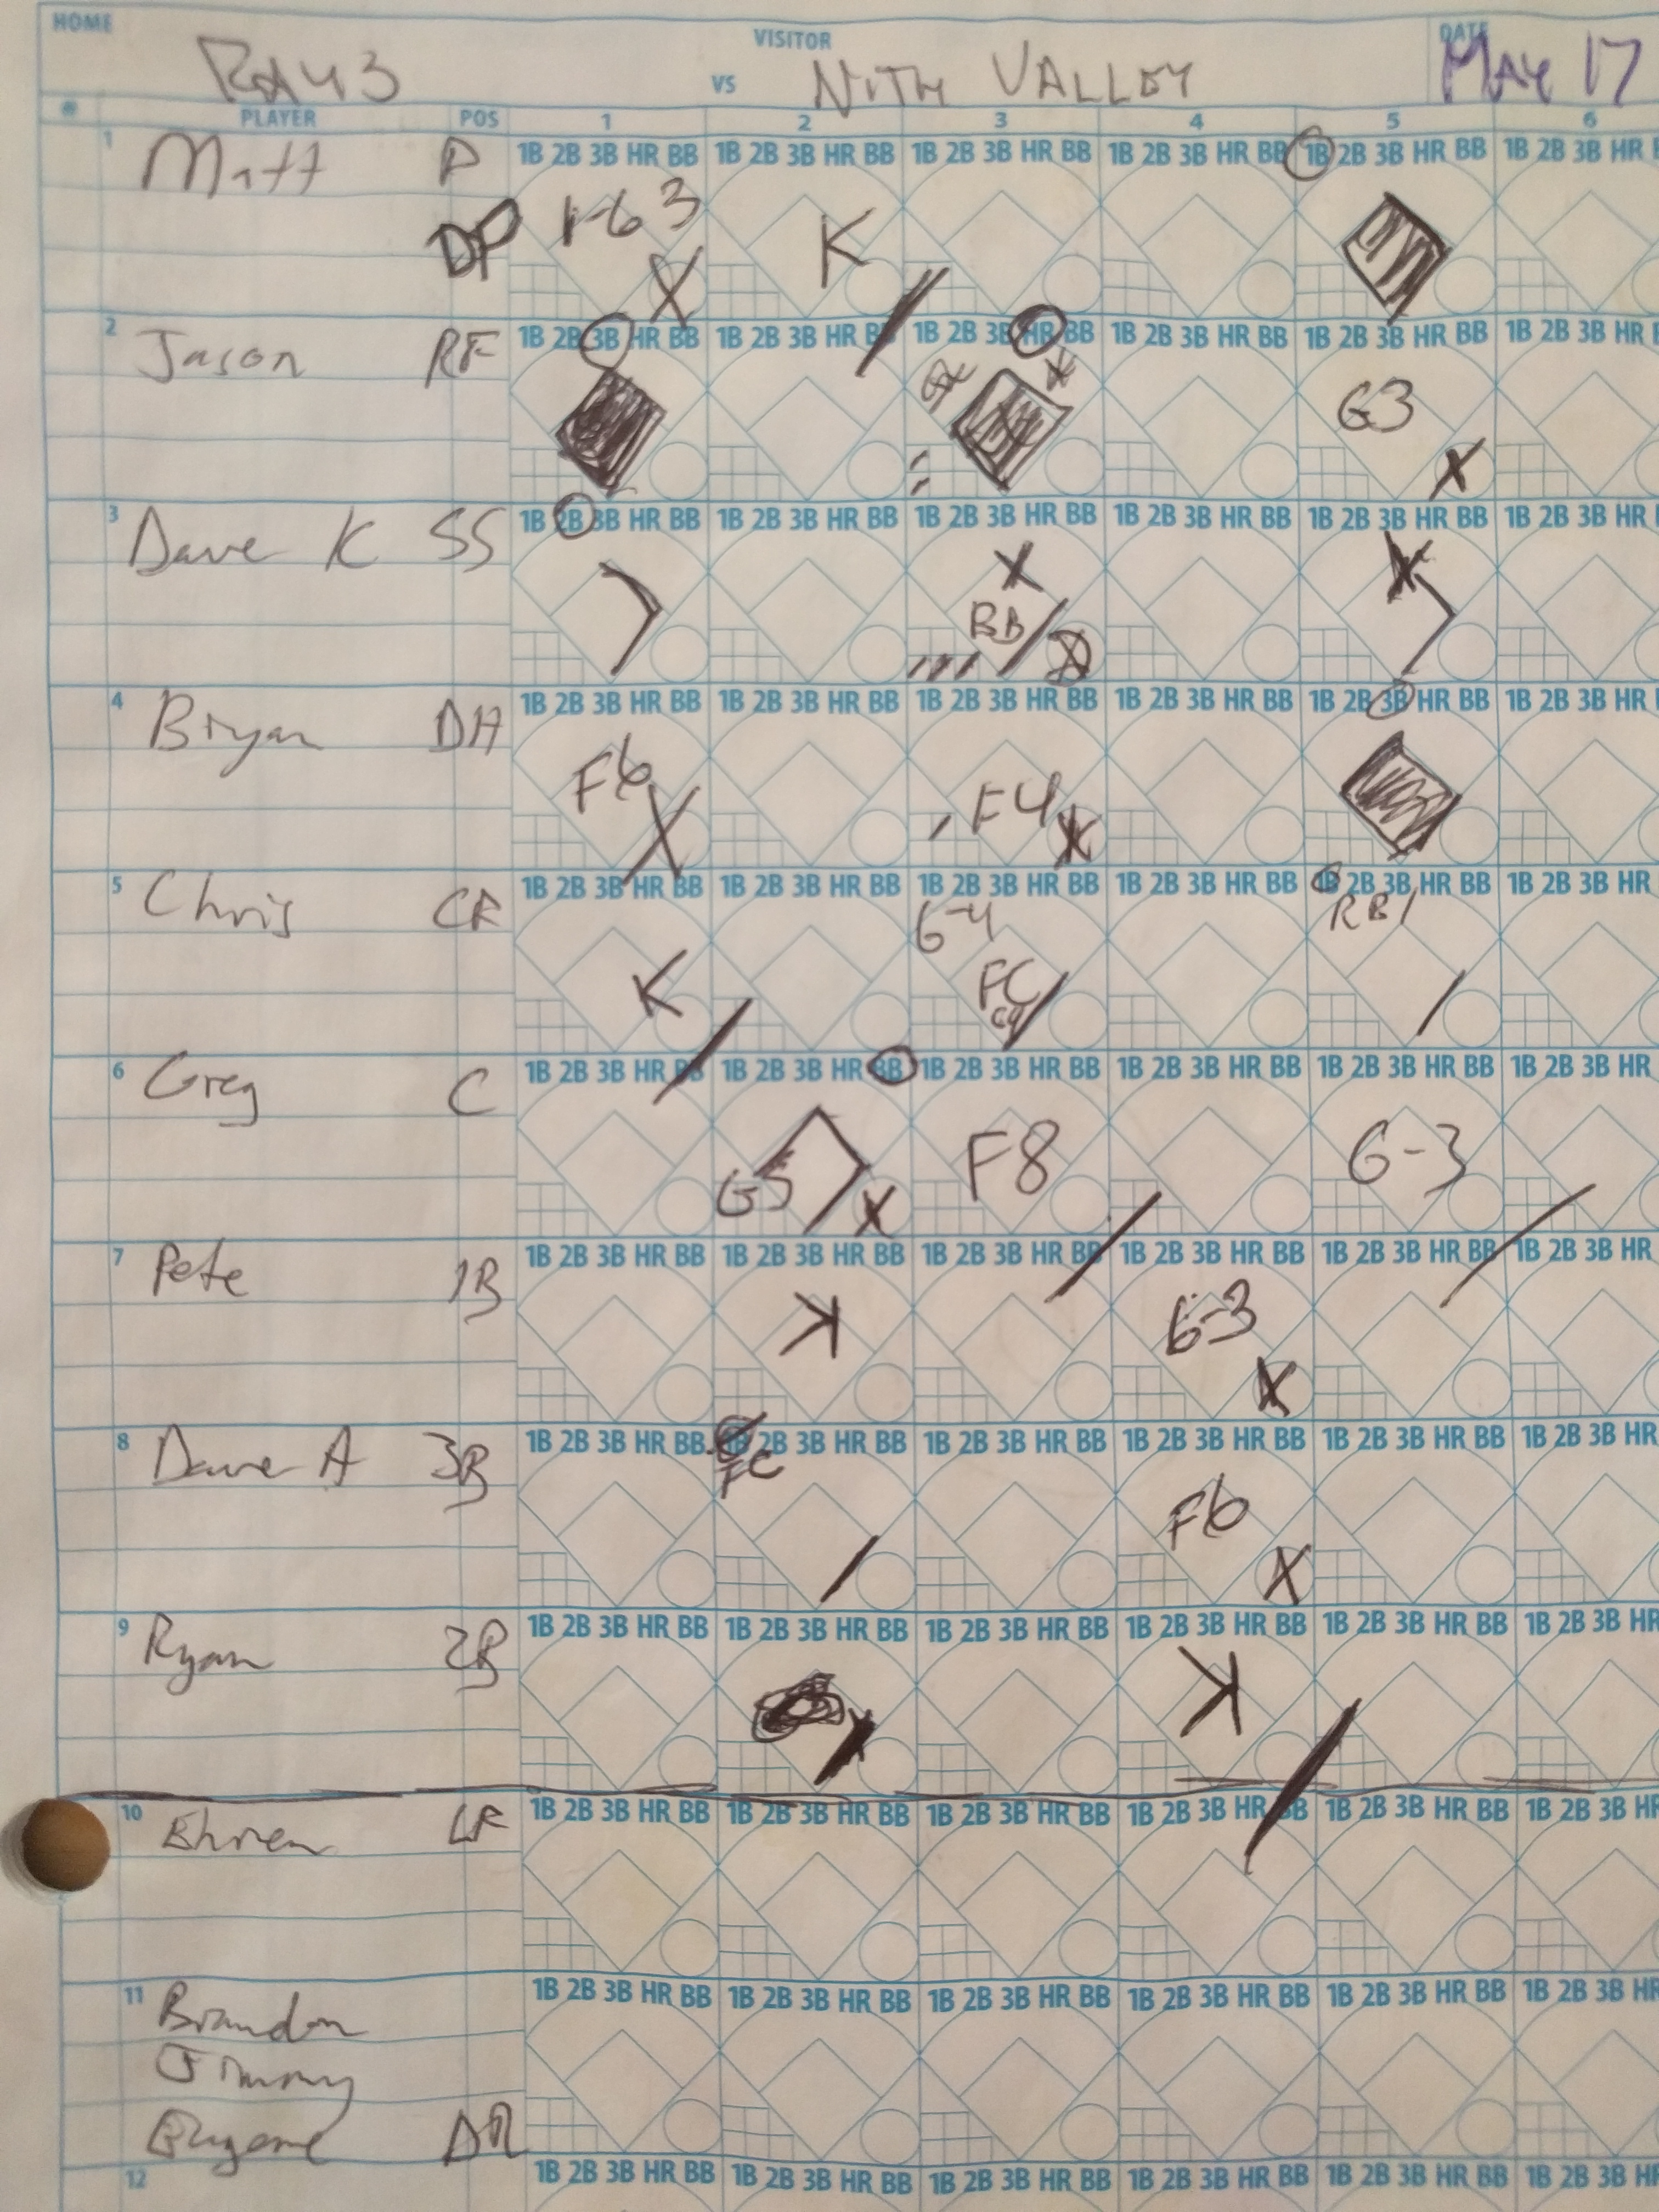 HOME VISITOR DATE
VS NITH VALLEY MAY 17
# PLAYER POS 1 2 3 4 5 6
1 Matt P 1B 2B 3B HR BB 1B 2B 3B HR BB 1B 2B 3B HR BB 1B 2B 3B HR BB 1B 2B 3B HR BB 1B 2B 3B HR
DP 1-6 3 K
2 Jason RF 1B 2B 3B HR BB 1B 2B 3B HR 1B 2B 3B HR BB 1B 2B 3B HR BB 1B 2B 3B HR BB 1B 2B 3B HR
G3
X
3 Dave K SS 1B 2B 3B HR BB 1B 2B 3B HR BB 1B 2B 3B HR BB 1B 2B 3B HR BB 1B 2B 3B HR BB 1B 2B 3B HR
X
BB
4 Bryan DH 1B 2B 3B HR BB 1B 2B 3B HR BB 1B 2B 3B HR BB 1B 2B 3B HR BB 1B 2B 3B HR BB 1B 2B 3B HR
F6 F4
X X
5 Chris CF 1B 2B 3B HR BB 1B 2B 3B HR BB 1B 2B 3B HR BB 1B 2B 3B HR BB 1B 2B 3B HR BB 1B 2B 3B HR
6-4 RBI
K FC
6 Greg C 1B 2B 3B HR BB 1B 2B 3B HR BB 1B 2B 3B HR BB 1B 2B 3B HR BB 1B 2B 3B HR BB 1B 2B 3B HR
G5 X F8 6-3
7 Pete 1B 1B 2B 3B HR BB 1B 2B 3B HR BB 1B 2B 3B HR BB 1B 2B 3B HR BB 1B 2B 3B HR BB 1B 2B 3B HR
K 6-3
X
8 Dave A 3B 1B 2B 3B HR BB 1B 2B 3B HR BB 1B 2B 3B HR BB 1B 2B 3B HR BB 1B 2B 3B HR BB 1B 2B 3B HR
FC F6
X
9 Ryan 2B 1B 2B 3B HR BB 1B 2B 3B HR BB 1B 2B 3B HR BB 1B 2B 3B HR BB 1B 2B 3B HR BB 1B 2B 3B HR
K
10 Ehren LF 1B 2B 3B HR BB 1B 2B 3B HR BB 1B 2B 3B HR BB 1B 2B 3B HR BB 1B 2B 3B HR BB 1B 2B 3B HR
11 Brandon 1B 2B 3B HR BB 1B 2B 3B HR BB 1B 2B 3B HR BB 1B 2B 3B HR BB 1B 2B 3B HR BB 1B 2B 3B HR
Jimmy
Eugene
12 1B 2B 3B HR BB 1B 2B 3B HR BB 1B 2B 3B HR BB 1B 2B 3B HR BB 1B 2B 3B HR BB 1B 2B 3B HR